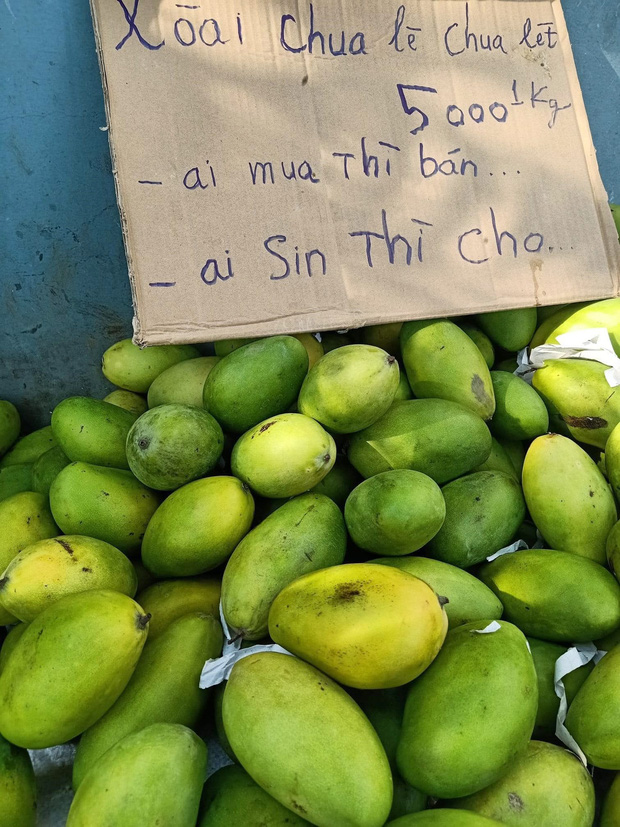 Xoài chua lè chua lét
5000 1kg
- ai mua thì bán...
- ai Sin thì cho...